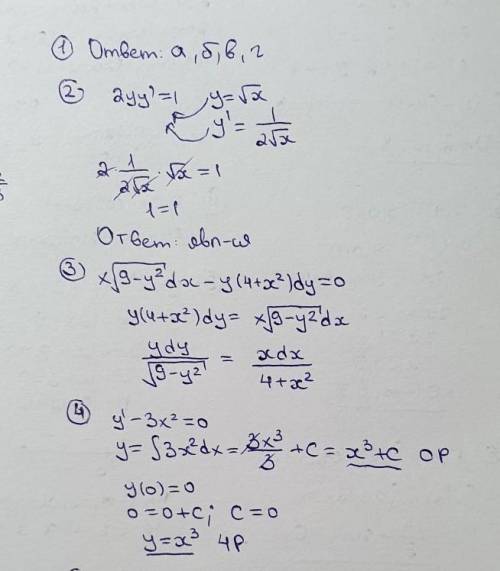 ① Ответ: а, б, в, г
② 2yy' = 1 y = √x
y' = 1/(2√x)
2 · 1/(2√x) · √x = 1
1 = 1
Ответ: явл-ся
③ x√(9-y²) dx - y(4+x²)dy = 0
y(4+x²)dy = x√(9-y²) dx
ydy/√(9-y²) = xdx/(4+x²)
④ y' - 3x² = 0
y = ∫3x²dx = 3x³/3 + C = x³ + C ОР
y(0) = 0
0 = 0 + C; C = 0
y = x³ ЧР